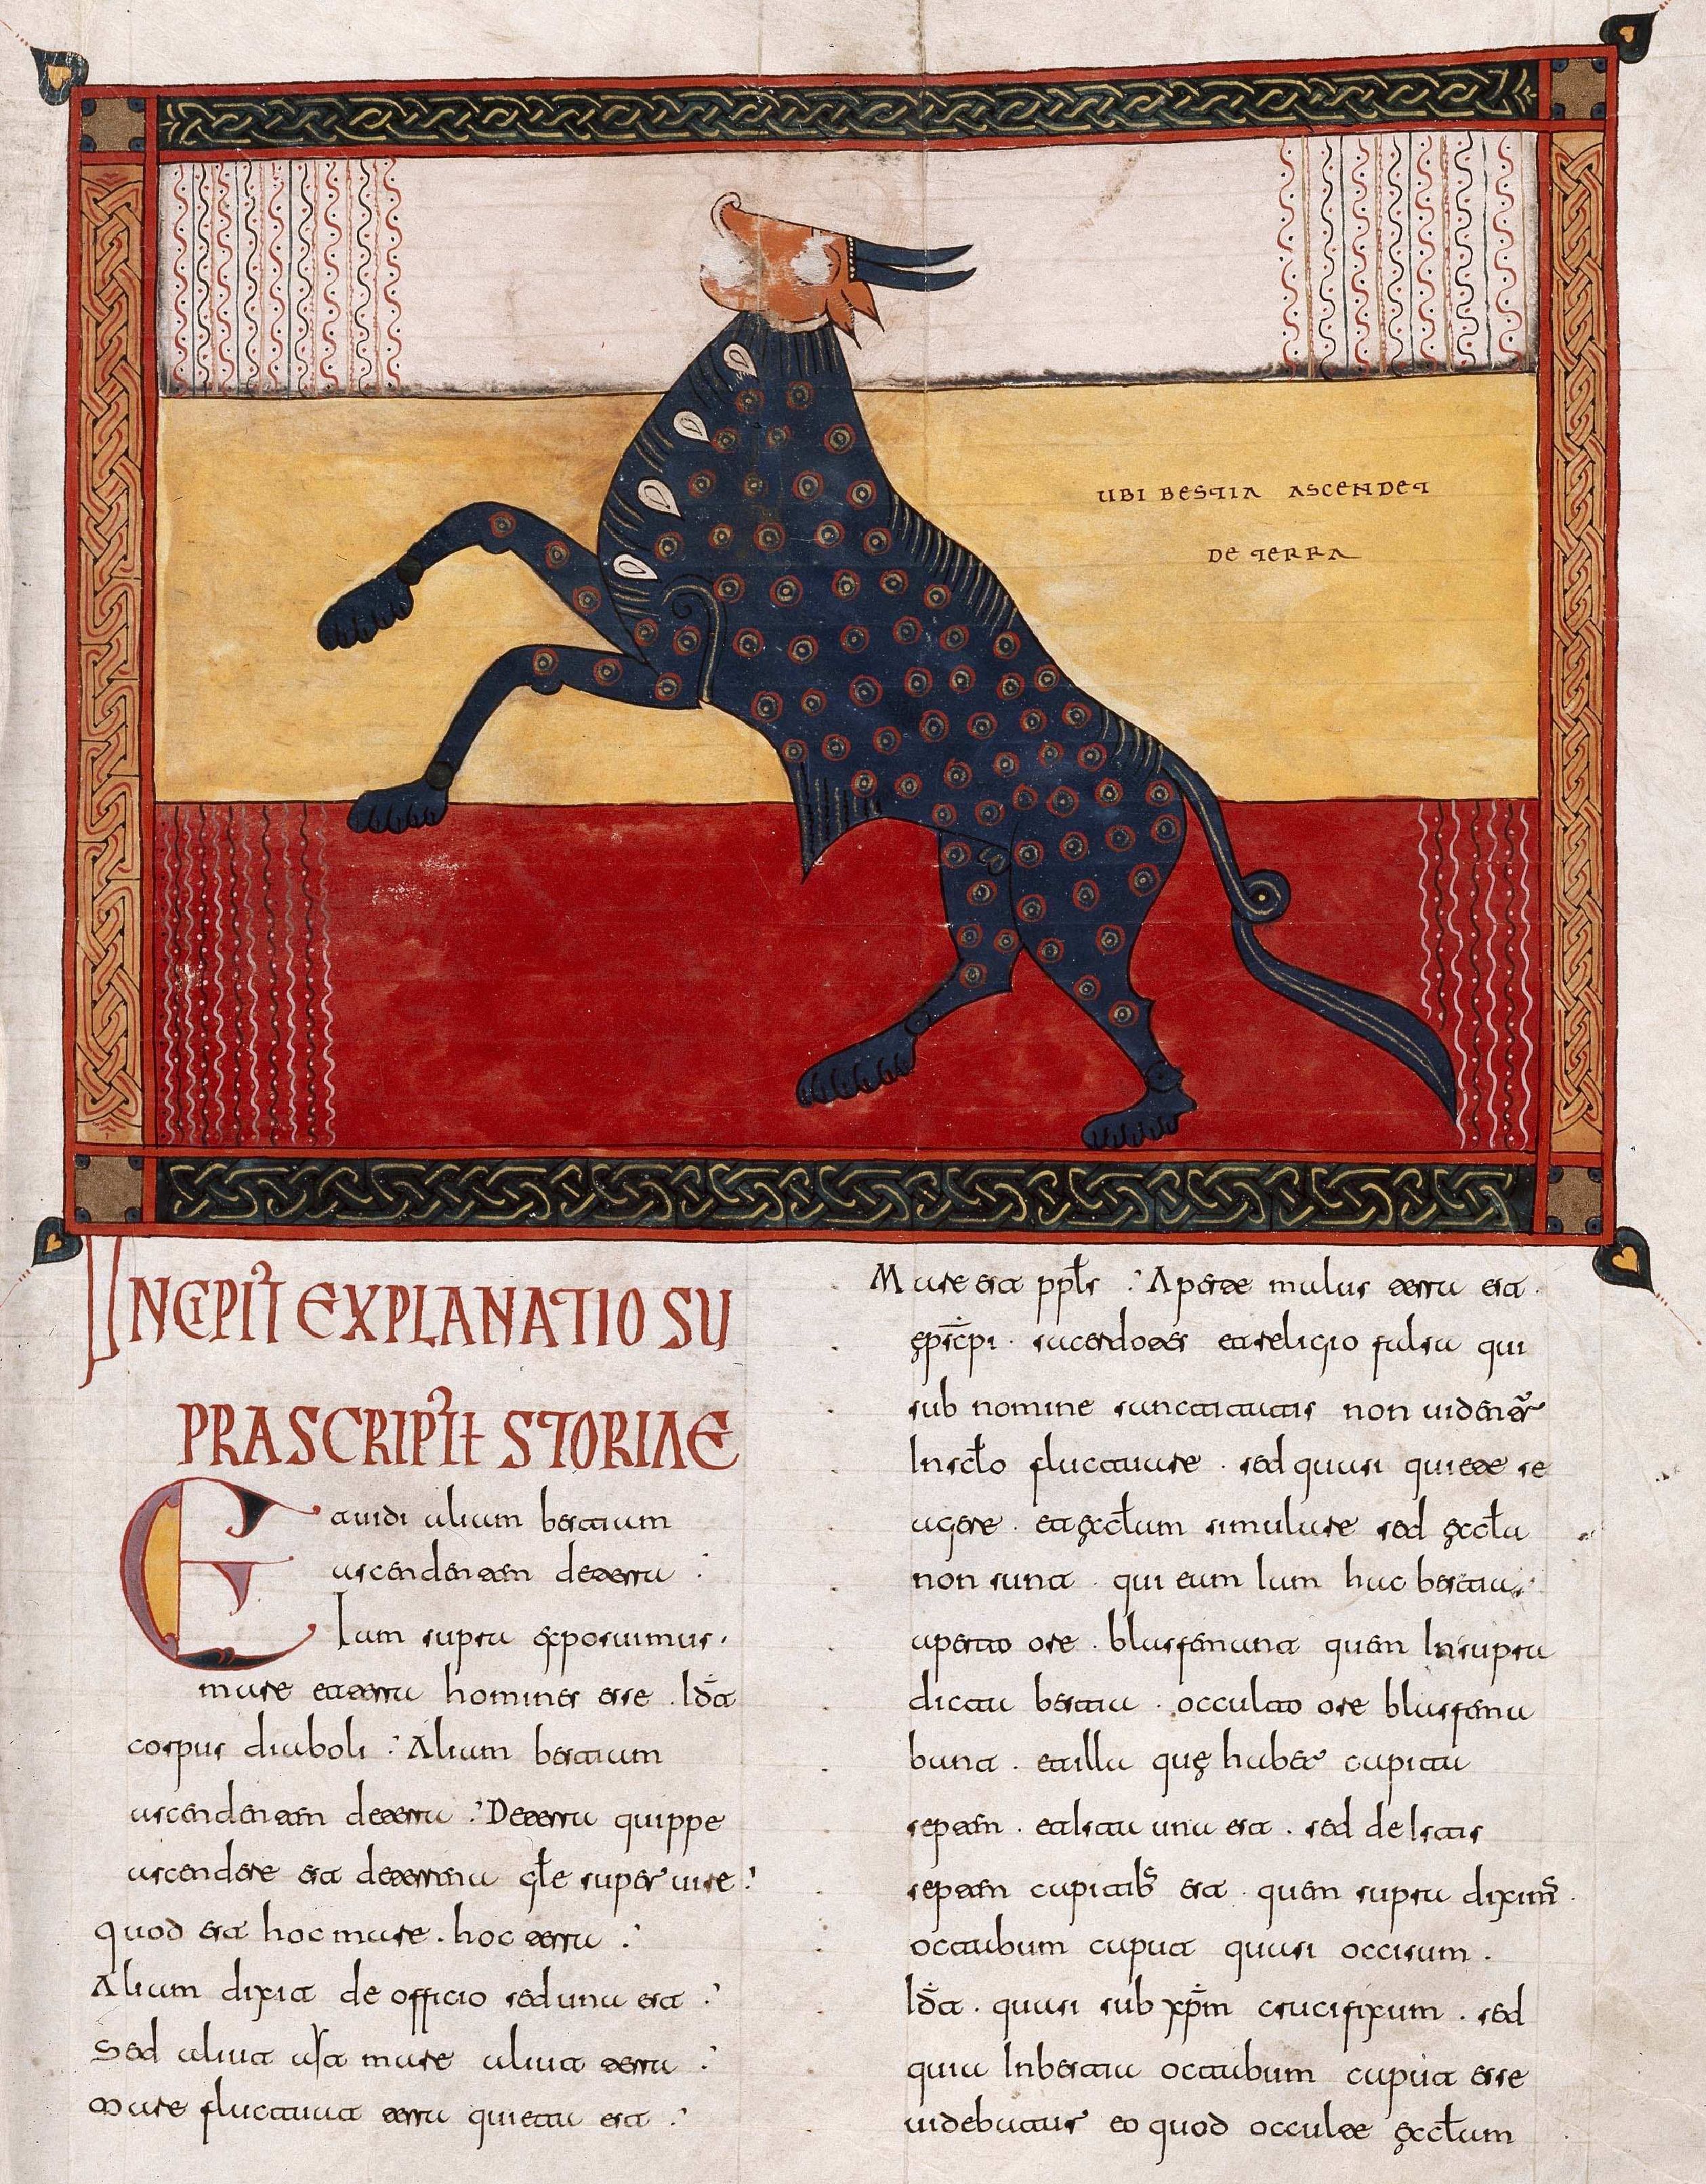 UBI BESTIA ASCENDET
DE TERRA
INCIPIT EXPLANATIO SU
PRASCRIPTE STORIAE
Et uidi aliam bestiam
ascendentem deterra :
Iam supra exposuimus .
mare et terra homines esse . Idst
corpus diaboli : Aliam bestiam
ascendentem deterra : Deterra quippe
ascendere est deterrena gle superuire :
quod est hoc mare . hoc terra :
Aliam dixit de officio sed una est :
Sed aliut mare aliut terra :
Mare fluctuat terra quieta est :
Mare est ppls : Aperte malus terra est .
epscpi . sacerdotes et religio falsa qui
sub nomine sanctitatis non uidentr
In sclo fluctuare . sed quasi quiete se
agere . et ecclam simulare sed eccla
non sunt . qui cum Iam hac bestia
aperto ore . blasfemant quem In supra
dicta bestia . occulto ore blasfema
bant . et illa que habet capita
septem . et Ista una est . sed de Istis
septem capitibs est . quem supra diximus .
octabum caput quasi occisum .
Idst . quasi sub xpm crucifixum . sed
quia In bestia octabum caput esse
uidebatur eo quod occulte ecclam